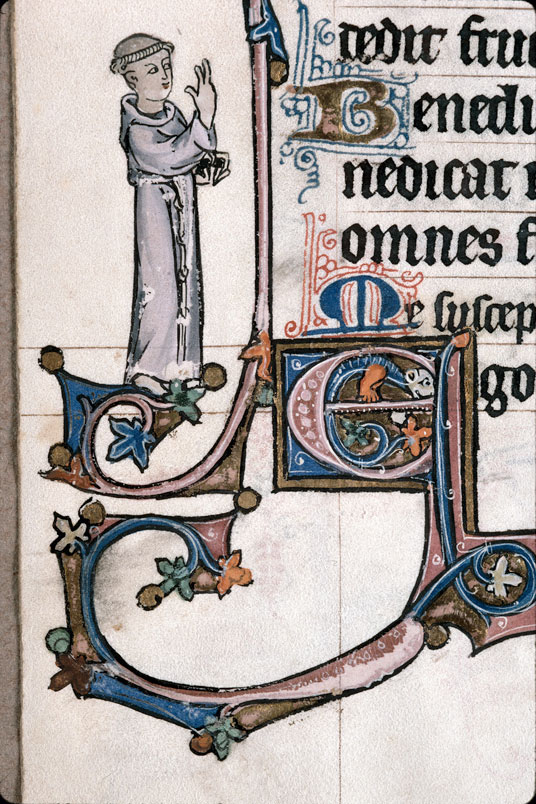 dedit fru
Benedi
nedicat
omnes f
Me suscep
Ego